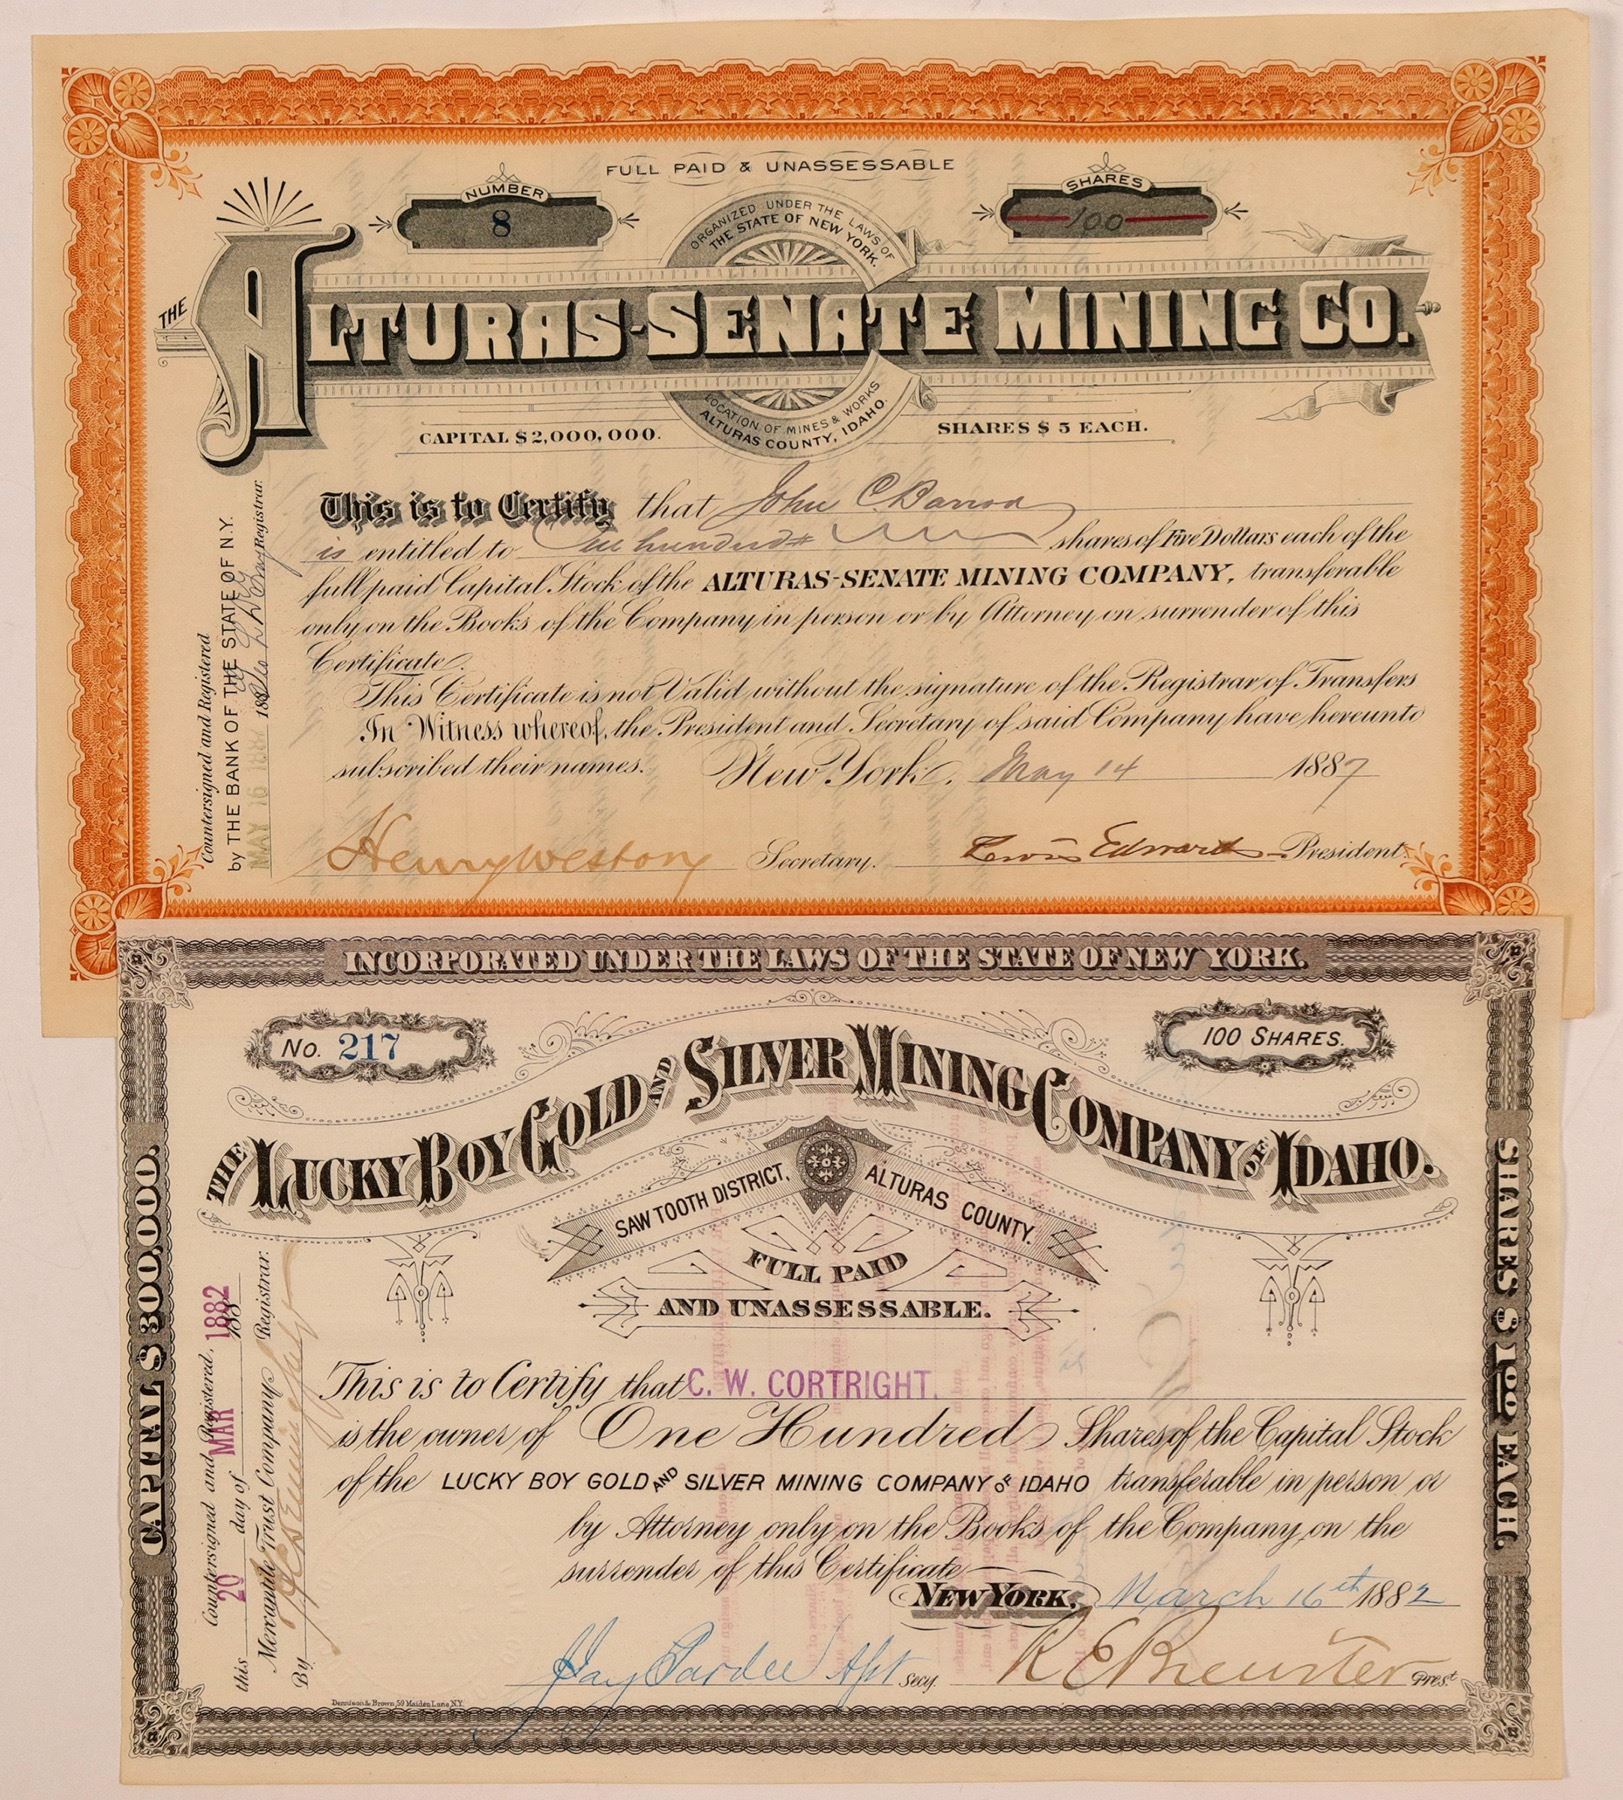 FULL PAID & UNASSESSABLE
NUMBER
8
SHARES
100
ORGANIZED UNDER THE LAWS OF
THE STATE OF NEW YORK.
THE
ALTURAS-SENATE MINING CO.
LOCATION OF MINES & WORKS
ALTURAS COUNTY, IDAHO.
CAPITAL $2,000,000.
SHARES $5 EACH.
This is to Certify that John C. Barron
is entitled to One hundred shares of Five Dollars each of the
full paid Capital Stock of the ALTURAS-SENATE MINING COMPANY, transferable
only on the Books of the Company in person or by Attorney on surrender of this
Certificate.
This Certificate is not Valid without the signature of the Registrar of Transfers
In Witness whereof, the President and Secretary of said Company have hereunto
subscribed their names. New York, May 14 1887
Henry Weston Secretary. Lewis Edwards President
Countersigned and Registered
by THE BANK OF THE STATE OF N.Y.
MAY 16 1887 188 Registrar.
INCORPORATED UNDER THE LAWS OF THE STATE OF NEW YORK.
No. 217
100 SHARES.
THE LUCKY BOY GOLD AND SILVER MINING COMPANY OF IDAHO.
SAW TOOTH DISTRICT, ALTURAS COUNTY.
FULL PAID
AND UNASSESSABLE.
This is to Certify that C. W. CORTRIGHT.
is the owner of One Hundred Shares of the Capital Stock
of the LUCKY BOY GOLD AND SILVER MINING COMPANY OF IDAHO transferable in person or
by Attorney only on the Books of the Company, on the
surrender of this Certificate
NEW YORK, March 16th 1882
Jay Pardee Asst Secy. R E Brewster Prest
Dennison & Brown, 59 Maiden Lane, N.Y.
CAPITAL $300,000.
SHARES $100 EACH.
Countersigned and Registered,
this 20 day of MAR 1882 188
Mercantile Trust Company Registrar.
By